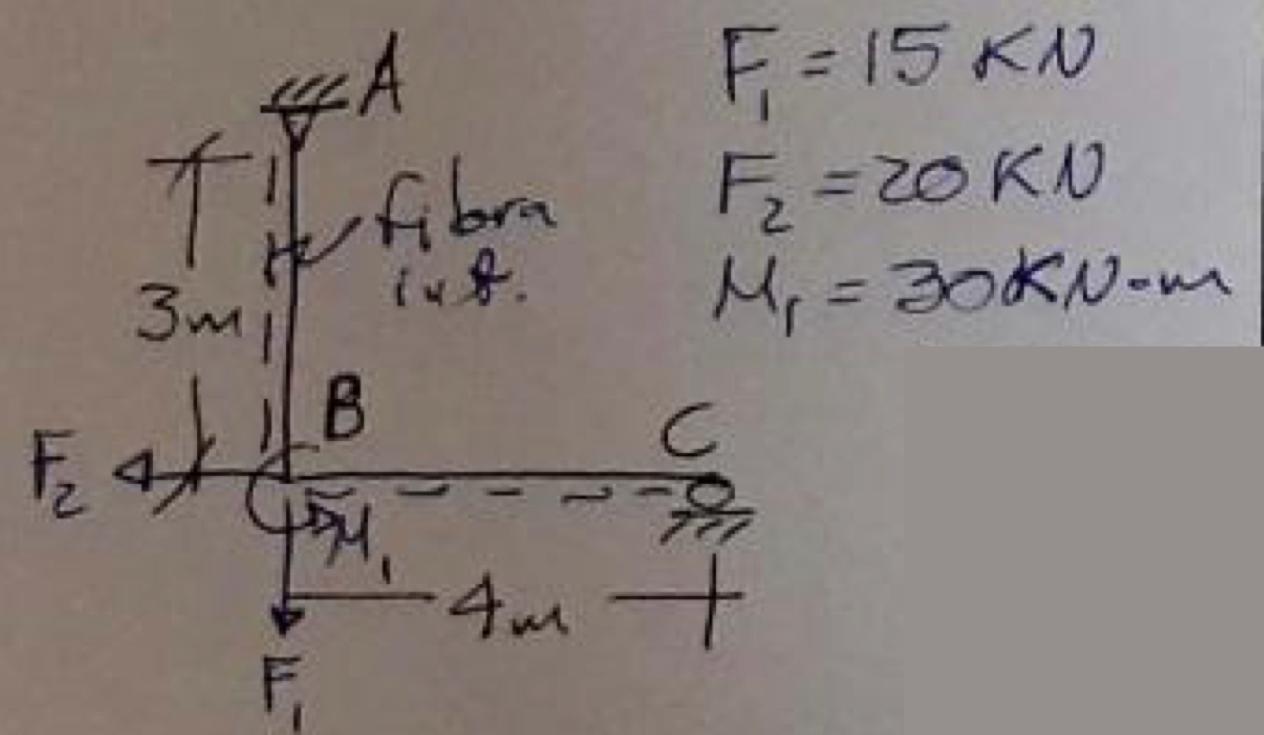 A
fibra
inf.
3m
B
C
F₂
M₁
4m
F₁
F₁ = 15 KN
F₂ = 20 KN
M₁ = 30 KN-m